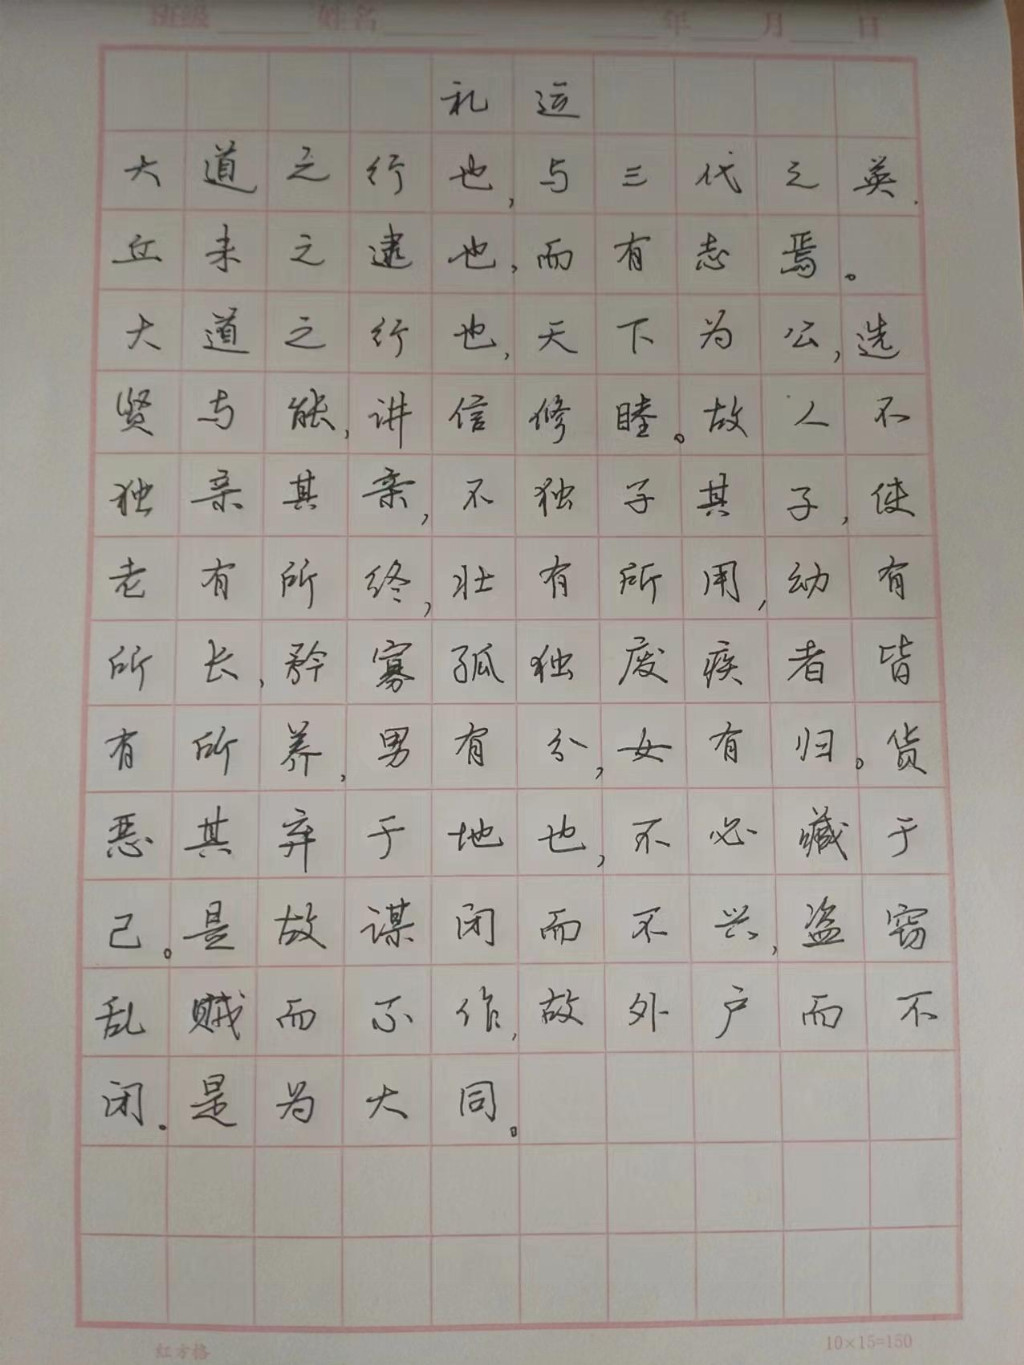 班级 姓名 年 月 日
礼运
大道之行也,与三代之英.
丘未之逮也,而有志焉。
大道之行也,天下为公,选
贤与能,讲信修睦。故人不
独亲其亲,不独子其子,使
老有所终,壮有所用,幼有
所长,矜寡孤独废疾者皆
有所养,男有分,女有归。货
恶其弃于地也,不必藏于
己。是故谋闭而不兴,盗窃
乱贼而不作,故外户而不
闭.是为大同。
红方格 10×15=150